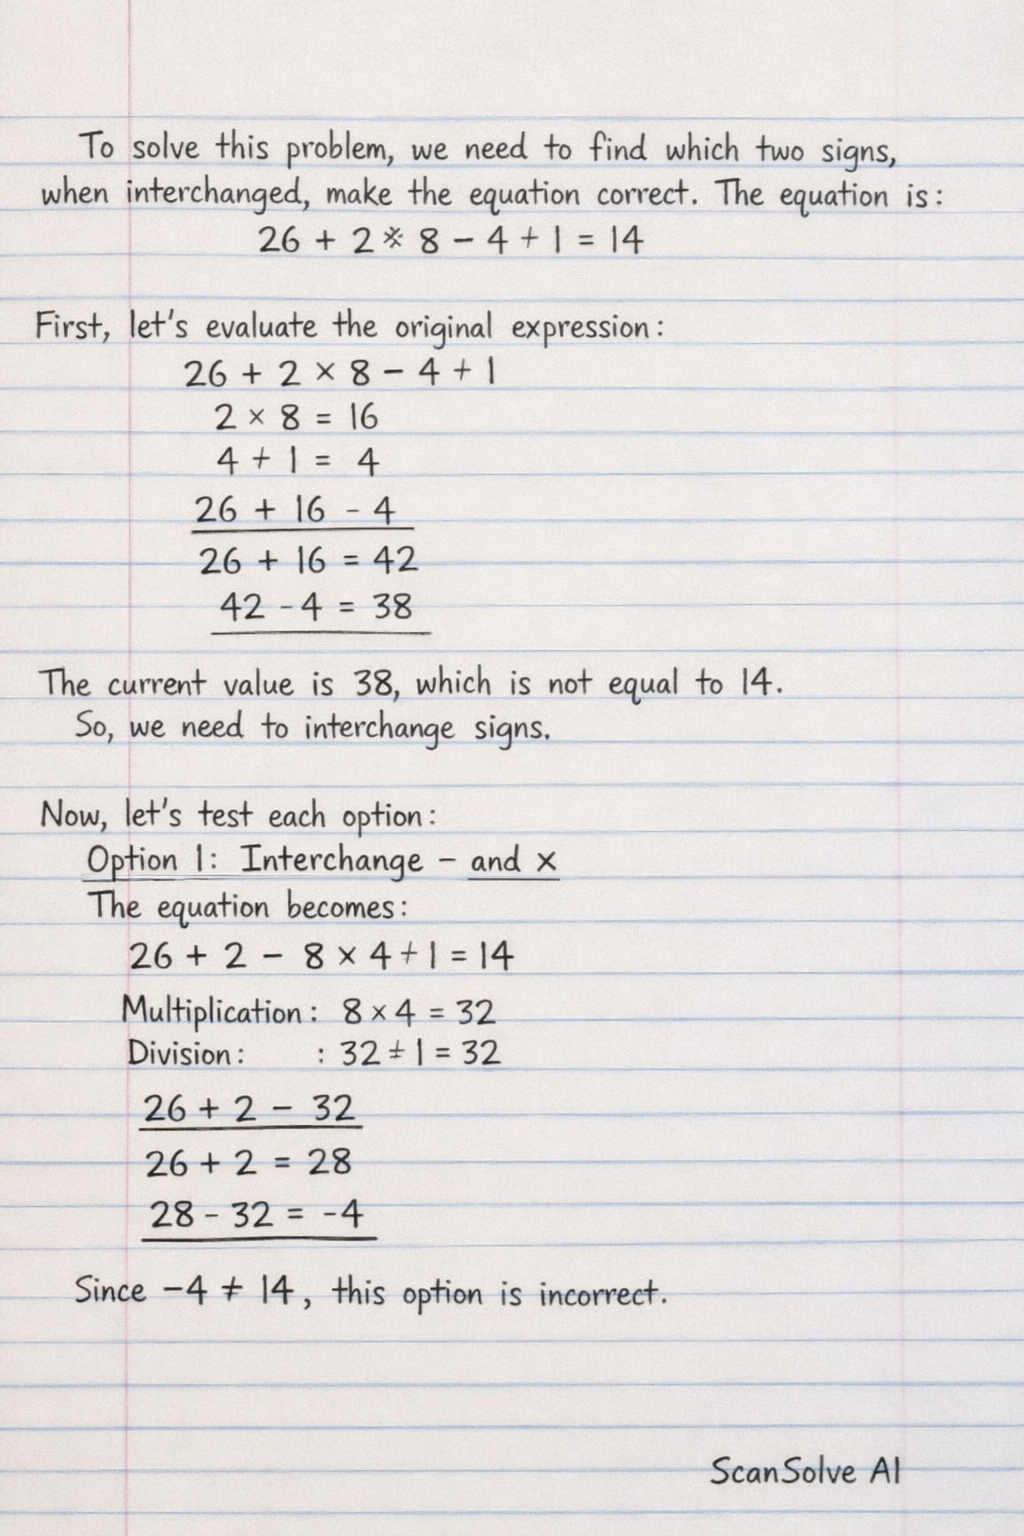 To solve this problem, we need to find which two signs,
when interchanged, make the equation correct. The equation is:
26 + 2 * 8 - 4 + 1 = 14
First, let's evaluate the original expression:
26 + 2 × 8 - 4 + 1
2 × 8 = 16
4 + 1 = 4
26 + 16 - 4
26 + 16 = 42
42 - 4 = 38
The current value is 38, which is not equal to 14.
So, we need to interchange signs.
Now, let's test each option:
Option 1: Interchange - and ×
The equation becomes:
26 + 2 - 8 × 4 + 1 = 14
Multiplication: 8 × 4 = 32
Division: : 32 ÷ 1 = 32
26 + 2 - 32
26 + 2 = 28
28 - 32 = -4
Since -4 ≠ 14, this option is incorrect.
ScanSolve AI